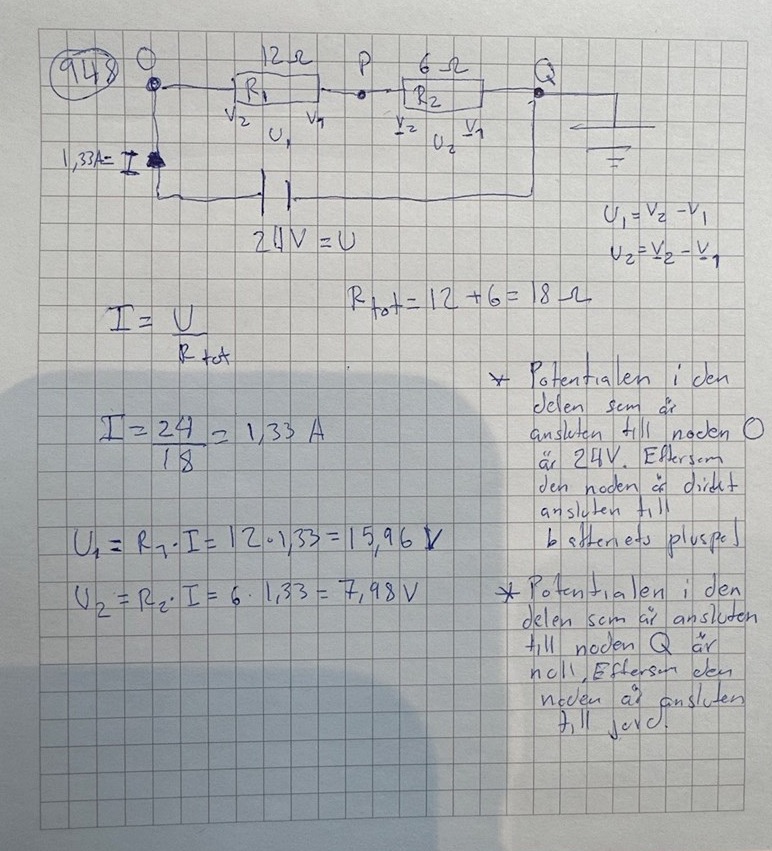 948
O 12Ω P 6Ω Q
R₁ R₂
V₂ V₁ V₂ V₁
U₁ U₂
1,33A= I
24V = U
U₁ = V₂ - V₁
U₂ = V₂ - V₁
R tot = 12 + 6 = 18 Ω
I = U / R tot
I = 24 / 18 = 1,33 A
U₁ = R₁ · I = 12 · 1,33 = 15,96 V
U₂ = R₂ · I = 6 · 1,33 = 7,98 V
* Potentialen i den
delen som är
ansluten till noden O
är 24V. Eftersom
den noden är direkt
ansluten till
batteriets pluspol
* Potentialen i den
delen som är ansluten
till noden Q är
noll, Eftersom den
noden är ansluten
till jord.